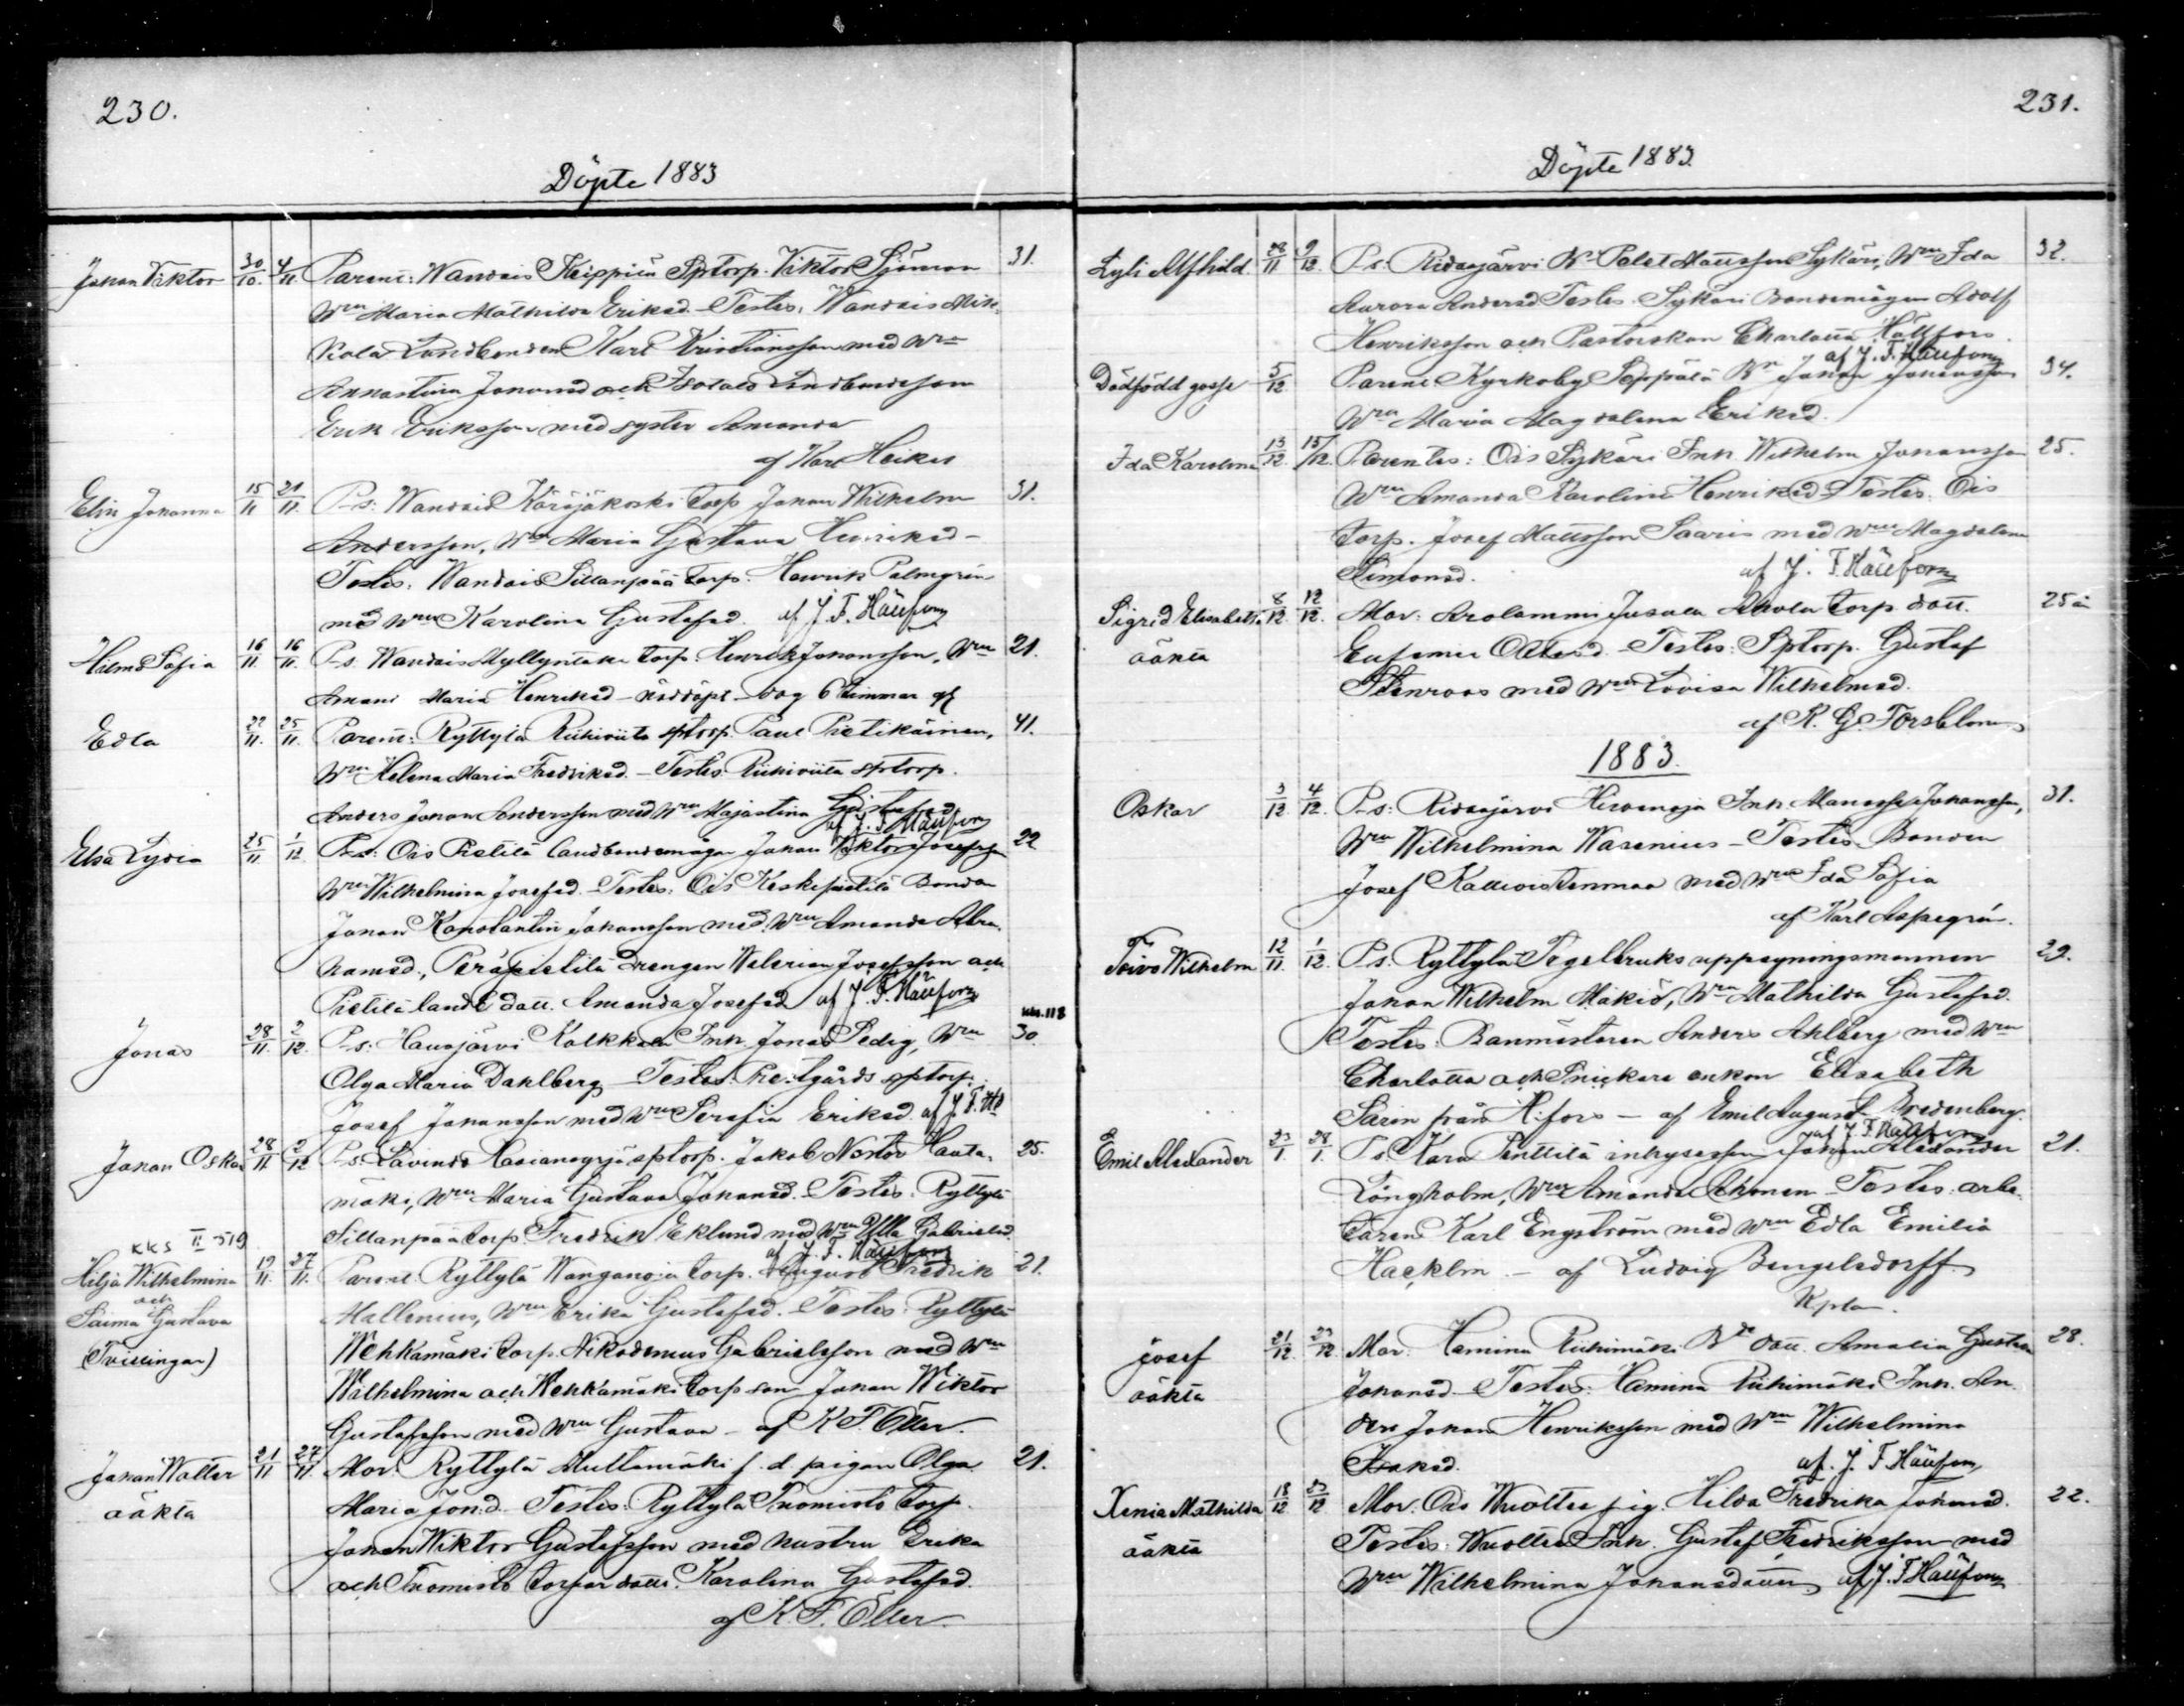 230.
Döpte 1883
Johan Viktor 30/10. 4/11. Parent: Wandais Seippilä Sptorp. Viktor Sjöman 31.
Wrm Maria Mathilda Eriksd. - Testes: Wandais Mik-
kola Landbonden Karl Kristiansson med Wrm
Annastina Johansd och Isotalo Landbondeson
Erik Eriksson med syster Amanda
af Karl Heikel
Elin Johanna 15/11 21/11. P-s: Wandais Käräjäkoski Torp. Johan Wilhelm 31.
Andersson, Wrm Maria Gustava Henriksd -
Testes. Wandais Sillanpää Torp. Henrik Palmgrén
med Wrm Karolina Gustafsd. af J. F. Hällfors
Hilma Sofia 16/11. 16/11. P-s. Wandais Myllynmaka Torp. Henrik Johansson, Wrm 21.
Amand Maria Henriksd - nöddöpt - dog 6 timmar gl
Edla 22/11. 25/11. Parent: Ryttylä Riihiviita sptorp. Paul Pietikäinen, 41.
Wrm Helena Maria Fredriksd. - Testes: Riihiviita sptorp.
Anders Johan Andersson med Wrm Majastina Gustafsd
af J. F. Hällfors
Elsa Lydia 25/11. 1/12 P-s: Ois Pietilä landbondemågen Johan Viktor Josefsson 22
Wrm Wilhelmina Josefsd. - Testes: Ois Keskipietilä Bonden
Johan Konstantin Johansson med Wrm Amanda Abra-
hamsd., Peräpietilä Drengen Walerian Josefsson och
Pietilä landb. dott. Amanda Josefsd af J. F. Hällfors
Jonas 28/11. 2/12. P-s: Hausjärvi Kolkkala Inh. Jonas Sedig, Wrm kks. 118 30.
Olga Maria Dahlberg - Testes: Prestgårds sptorp.
Josef Johansson med Wrm Serafia Eriksd. af J. F. Hll
Johan Oskar 28/11 2/12 P-s: Lavinto Hasianogrjä sptorp. Jakob Nestor Hauta- 25.
mäki, Wrm Maria Gustava Johansd. - Testes: Ryttylä
Sillanpää torp. Fredrik Eklund med Wrm Ulla Gabrielsd.
af J. F. Hällfors
KKS II 519
Hilja Wilhelmina 19/11. 27/11. Parent: Ryttylä Wanganoja torp. August Fredrik 21.
och
Saima Gustava Mallenius, Wrm Erika Gustafsd. - Testes: Ryttylä
(Tvillingar) Wehkamäki torp. Nikodemus Gabrielsson med Wrm
Wilhelmina och Wehkamäki torp son Johan Wiktor
Gustafsson med Wrm Gustava - af K. F. Öller.
Johan Walter 21/11 27/11. Mor: Ryttylä Multamäki f. d. pigan Olga 21.
oäkta Maria Jonsd. Testes: Ryttylä Tuomisto torp.
Johan Wiktor Gustafsson med hustru Erika
och Tuomisto torpar dott. Karolina Gustafsd.
af K. F. Öller.
231.
Döpte 1883.
Lyli Alfhild 28/11 9/12. P-s. Ridasjärvi Palet Mattsson Sykäri, Wrm Ida 32.
Aurora Andersd Testes: Sykäri Bondemågen Adolf
Henriksson och Pastorskan Charlotta Hällfors.
af J. F. Hällfors
Dödfödd gosse 5/12 Parent Kyrkoby Seppälä Bn Johan Johansson 34.
Wrm Maria Magdalena Eriksd.
Ida Karolina 13/12. 15/12. Parentes: Ois Sykäri Inh Wilhelm Johansson 25.
Wrm Amanda Karolina Henriksd - Testes: Ois
torp. Josef Mattsson Saaris med Wrm Magdalena
Simonsd. af J. F. Hällfors
Sigrid Elisabeth 8/12 12/12. Mor: Arolammi Jusula Ahola torp. dott. 25 år
oäkta Eufemia Ottosd. - Testes: Sptorp. Gustaf
Stenroos med Wrm Lovisa Wilhelmsd.
af K. G. Forsblom
1883.
Oskar 3/12 4/12. P-s: Ridasjärvi Hirvenoja Inh. Manasse Johansson, 31.
Wrm Wilhelmina Wasenius - Testes: Bonden
Josef Kalliois med Wrm Ida Sofia
af Karl Aspegrén.
Toivo Wilhelm 12/11. 1/12. P-s. Ryttylä Tegelbruks uppsyningsmannen 29.
Johan Wilhelm Mäkiö, Wrm Mathilda Gustafsd.
Testes: Banmästaren Anders Ahlberg med Wrm
Charlotta och Snickare enkan Elisabeth
Sarin från H:fors - af Emil August Bredenberg.
af J. F. Hällfors
Emil Alexander 23/1 28/1. P-s. Kara Penttilä inhysesson Johan Alexander 21.
Långholm, Wrm Amanda Ahonen - Testes: arbe-
taren Karl Engström med Wrm Edla Emilia
Hacklin - af Ludvig Bengelsdorff
Kplan.
Josef 21/12. 23/12 Mor. Hemina Riihimäki Bde dott. Amalia Gustava 28.
oäkta Johansd - Testes: Hemina Riihimäki Inh. An-
ders Johan Henriksson med Wrm Wilhelmina
Isaksd. af. J. F. Hällfors
Xenia Mathilda 18/12. 23/12 Mor. Ois Wuoltee pig. Hilda Fredrika Johansd. 22.
oäkta Testes: Wuoltee Inh. Gustaf Fredriksson med
Wrm Wilhelmina Johansdotter af J. F. Hällfors